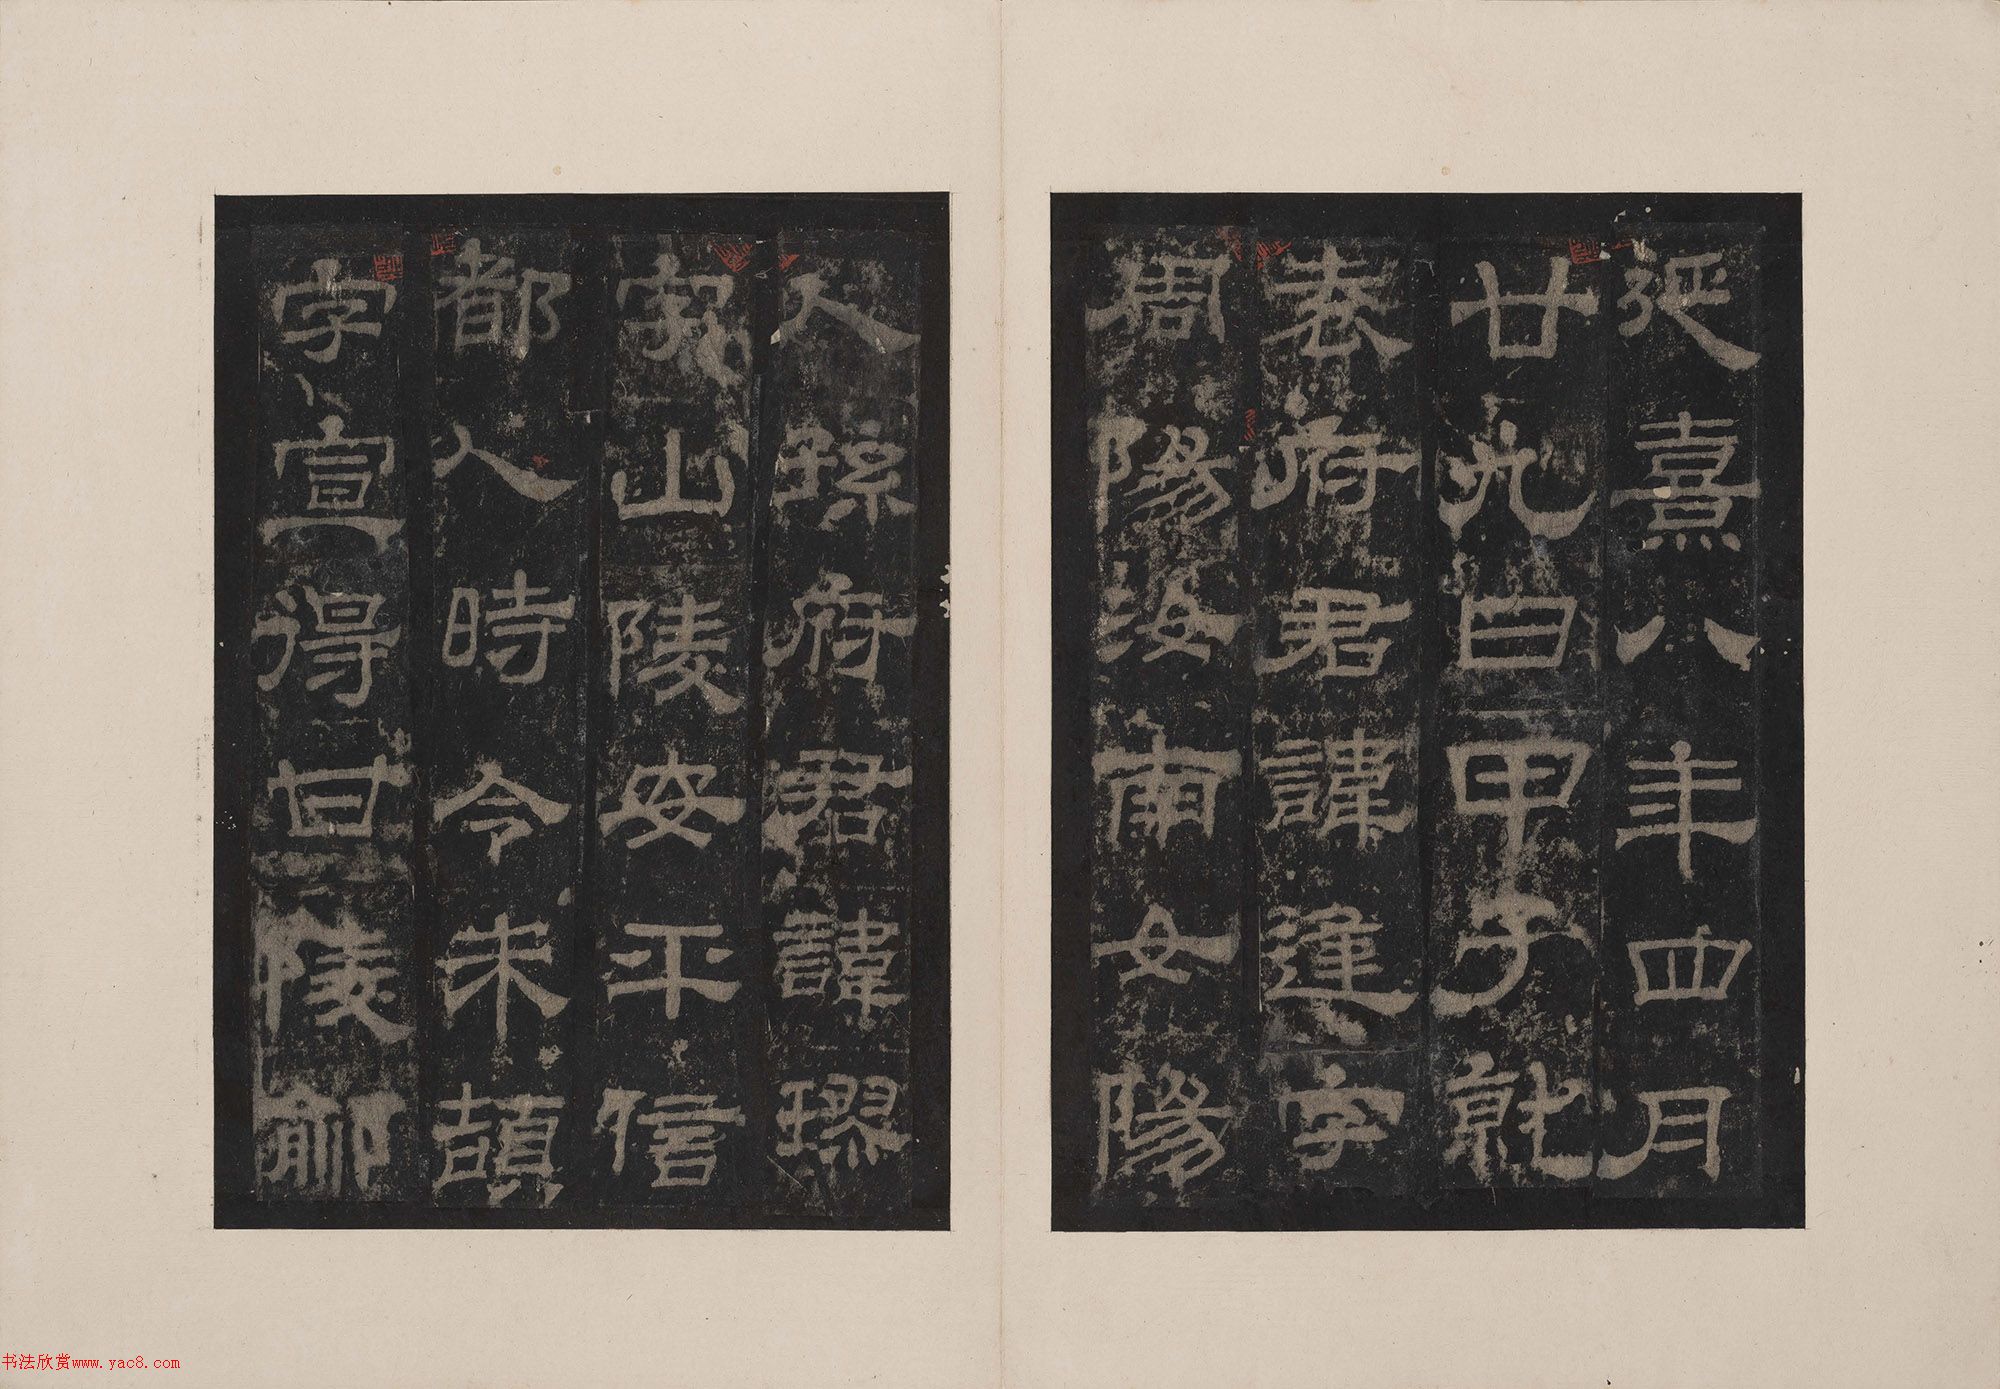 延熹八年四月
廿九日甲子就
袁府君諱逢字
周陽汝南女陽
人孫府君諱璆
字山陵安平信
都人時令朱頡
字宣得甘陵鄃
书法欣赏www.yac8.com